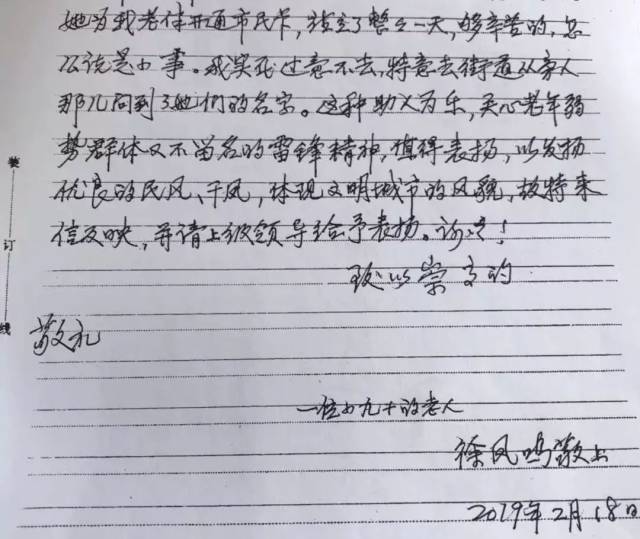 她为我老伴开通市民卡，演了整々一天，够辛苦的，怎
么说是小事。我实在过意不去，特意去街道从旁人
那儿问到了她们的名字。这种助人为乐，关心老年弱
势群体又不留名的雷锋精神，值得表扬，以发扬
优良的民风、干风，体现文明城市的风貌，故特来
信反映，并请上级领导给予表扬。谢谢！
致以崇高的
敬礼
一位九十的老人
徐凤鸣敬上
2019年2月18日
装
订
线